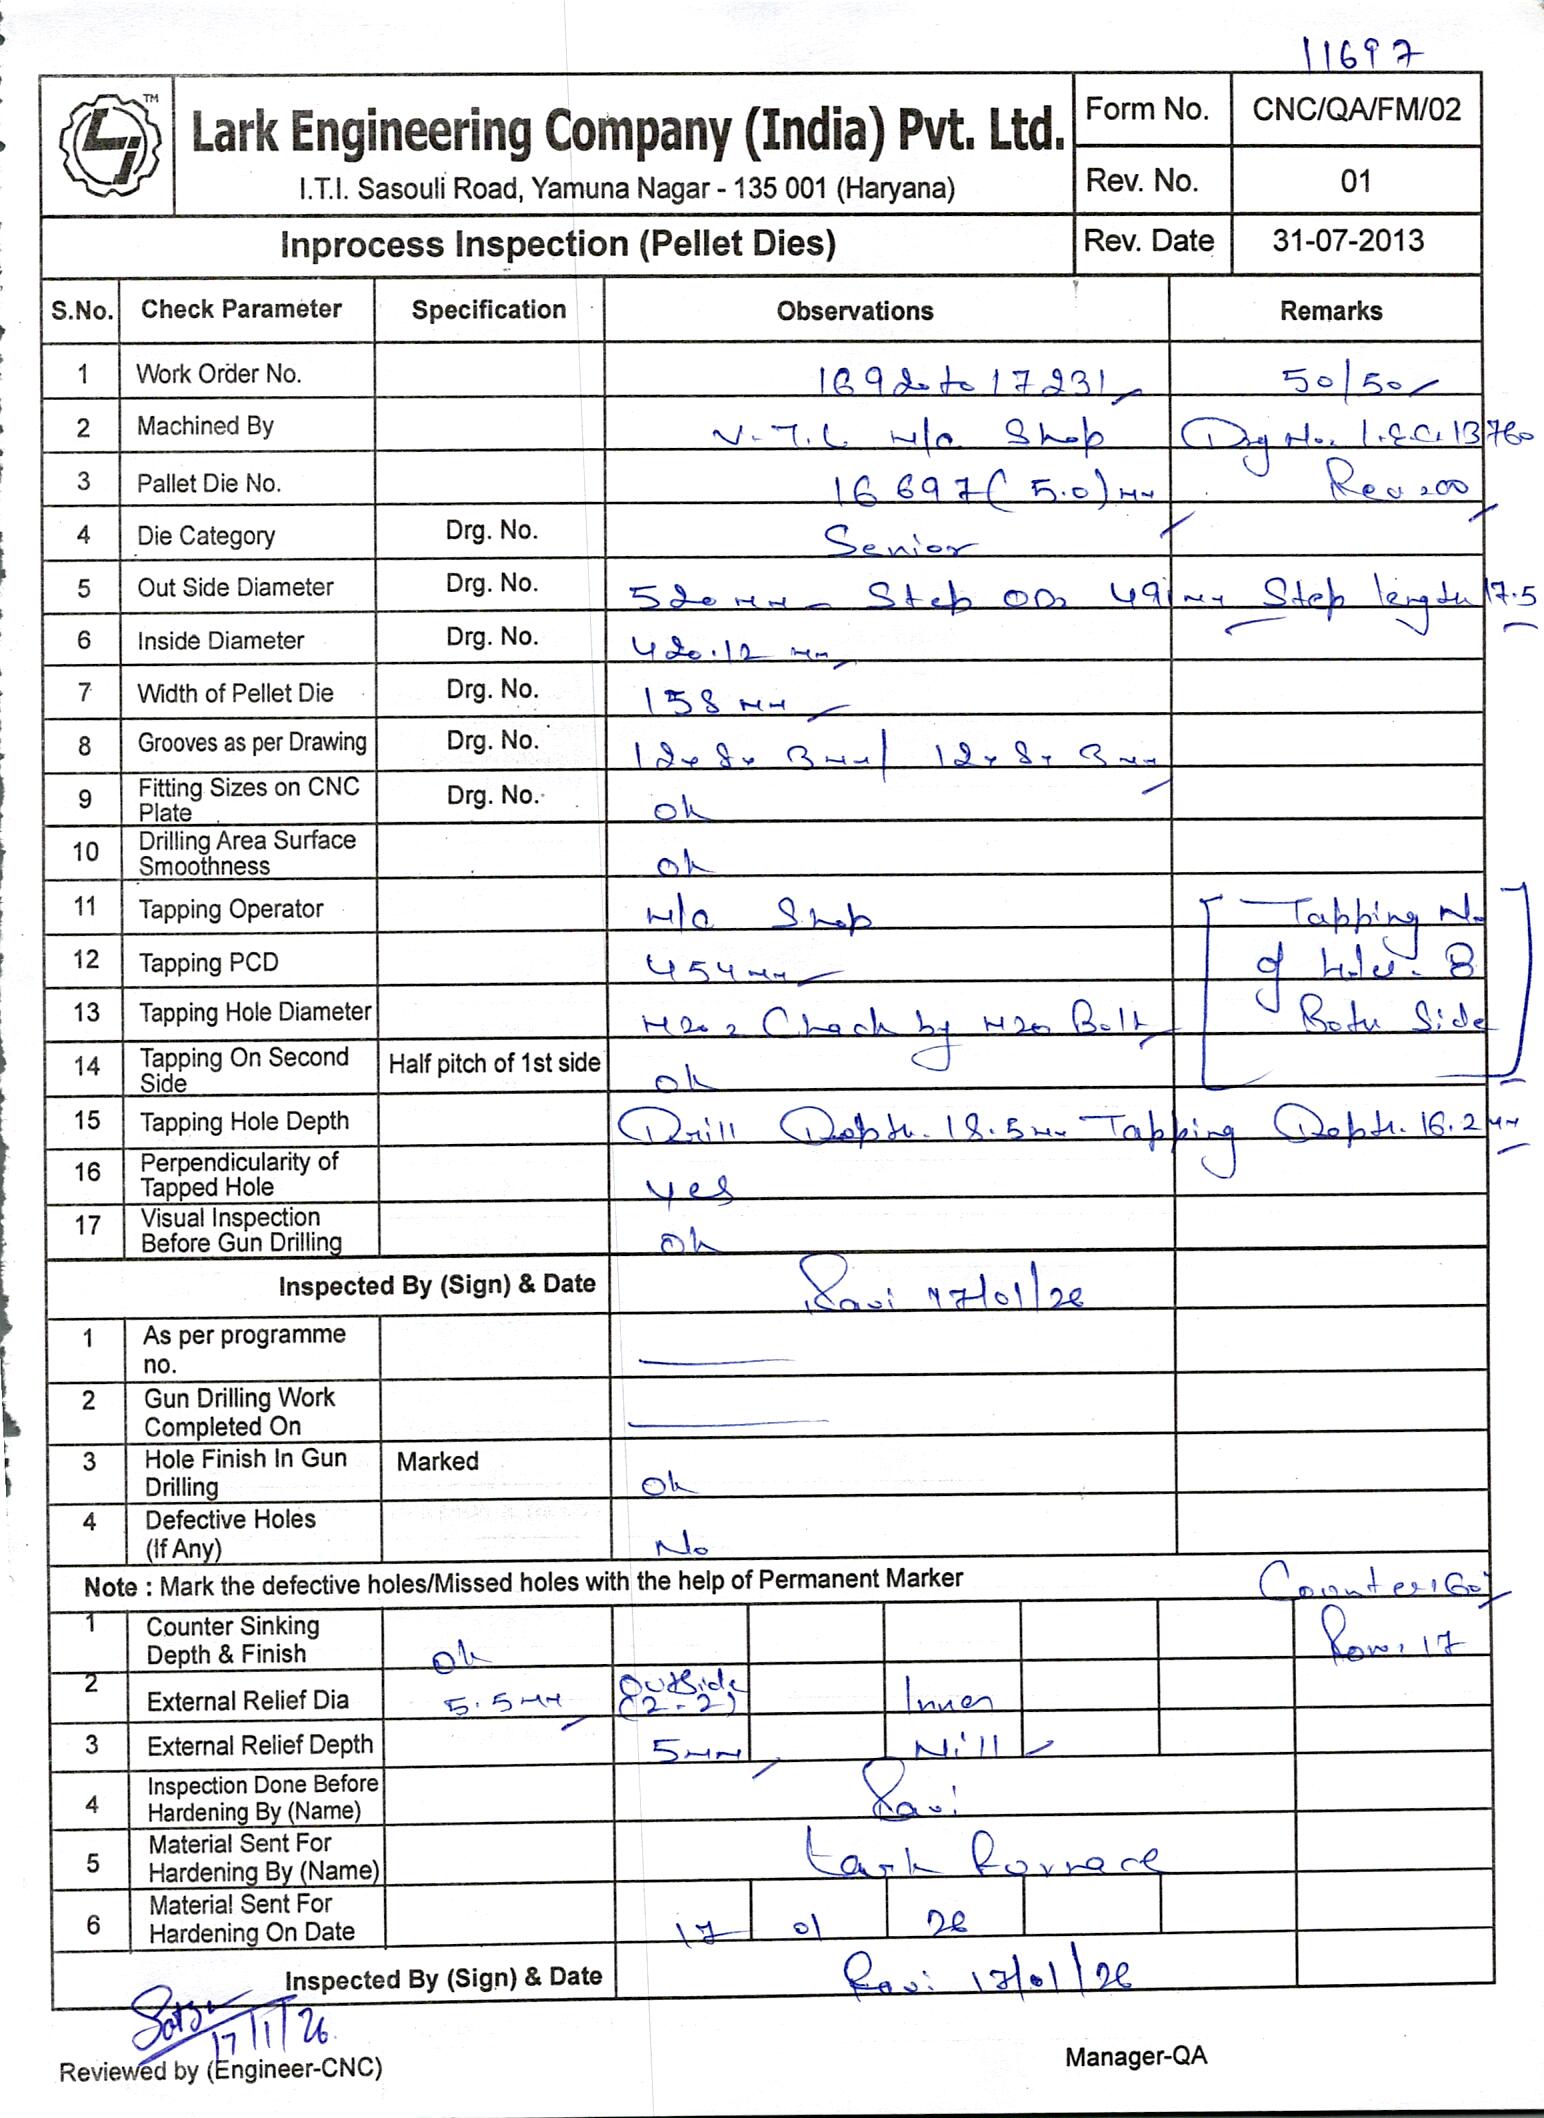 11697
TM
Lark Engineering Company (India) Pvt. Ltd.
I.T.I. Sasouli Road, Yamuna Nagar - 135 001 (Haryana)
Form No. CNC/QA/FM/02
Rev. No. 01
Inprocess Inspection (Pellet Dies)
Rev. Date 31-07-2013
S.No. Check Parameter Specification Observations Remarks
1 Work Order No. 16920 to 17231 50/50
2 Machined By V.T.L M/c Shop Drg No. L.E.C. 13760
3 Pallet Die No. 16697 (5.0) mm Rev 00
4 Die Category Drg. No. Senior
5 Out Side Diameter Drg. No. 520 mm Step OD 491 mm Step length 17.5
6 Inside Diameter Drg. No. 420.12 mm
7 Width of Pellet Die Drg. No. 158 mm
8 Grooves as per Drawing Drg. No. 12x8x3mm/ 12x8x3mm
9 Fitting Sizes on CNC Plate Drg. No. ok
10 Drilling Area Surface Smoothness ok
11 Tapping Operator M/c Shop Tapping No.
12 Tapping PCD 454 mm of Holes. 8
13 Tapping Hole Diameter M20 Check by M20 Bolt Both Side
14 Tapping On Second Side Half pitch of 1st side ok
15 Tapping Hole Depth Drill Depth. 18.5mm Tapping Depth. 16.2mm
16 Perpendicularity of Tapped Hole yes
17 Visual Inspection Before Gun Drilling ok
Inspected By (Sign) & Date Ravi 17/01/26
1 As per programme no.
2 Gun Drilling Work Completed On
3 Hole Finish In Gun Drilling Marked ok
4 Defective Holes (If Any) No
Note : Mark the defective holes/Missed holes with the help of Permanent Marker Counter: 60°
1 Counter Sinking Depth & Finish ok Row: 17
2 External Relief Dia 5.5mm Outside (2-2) Inner
3 External Relief Depth 5mm Nill
4 Inspection Done Before Hardening By (Name) Ravi
5 Material Sent For Hardening By (Name) Lark Furnace
6 Material Sent For Hardening On Date 17 01 26
Inspected By (Sign) & Date Ravi 17/01/26
17/1/26
Reviewed by (Engineer-CNC)
Manager-QA